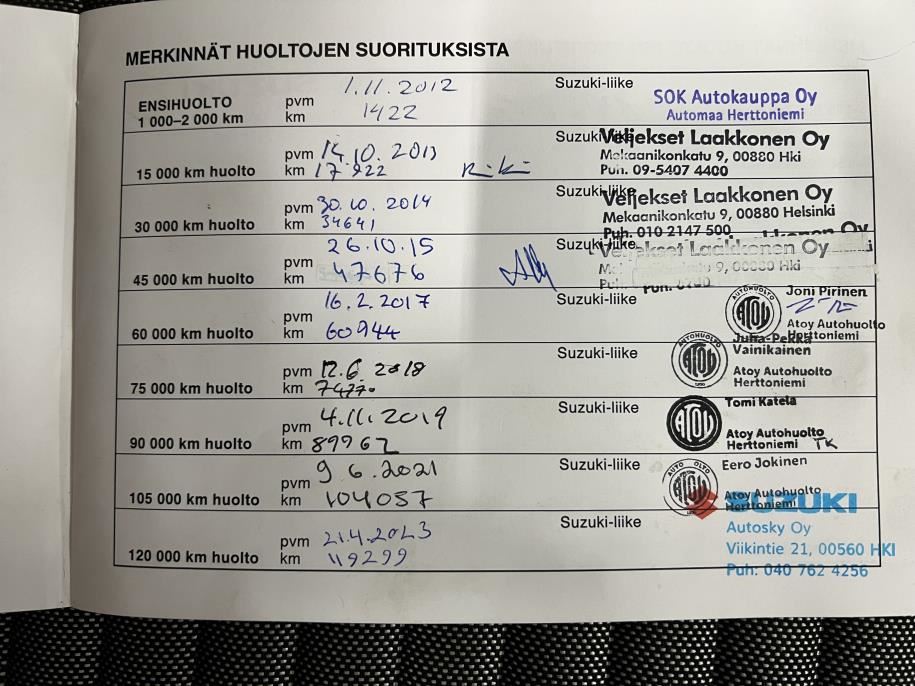 MERKINNÄT HUOLTOJEN SUORITUKSISTA
ENSIHUOLTO
1 000–2 000 km
pvm 1.11.2012
km 1422
Suzuki-liike
SOK Autokauppa Oy
Automaa Herttoniemi
15 000 km huolto
pvm 14.10.2013
km 17922
Suzuki-liike
Veljekset Laakkonen Oy
Mekaanikonkatu 9, 00880 Hki
Puh. 09-5407 4400
30 000 km huolto
pvm 30.10.2014
km 34641
Suzuki-liike
Veljekset Laakkonen Oy
Mekaanikonkatu 9, 00880 Helsinki
Puh. 010 2147 500
45 000 km huolto
pvm 26.10.15
km 47676
Suzuki-liike
Veljekset Laakkonen Oy
9, 00880 Hki
60 000 km huolto
pvm 16.2.2017
km 60944
Suzuki-liike
AUTOHUOLTO
ATOY
Joni Pirinen
Atoy Autohuolto
Herttoniemi
75 000 km huolto
pvm 12.6 2018
km
Suzuki-liike
AUTOHUOLTO
ATOY
Juha-Pekka
Vainikainen
Atoy Autohuolto
Herttoniemi
90 000 km huolto
pvm 4.11.2019
km 89962
Suzuki-liike
ATOY
Tomi Katela
Atoy Autohuolto
Herttoniemi TK
105 000 km huolto
pvm 9 6.2021
km 104057
Suzuki-liike
ATOY
Eero Jokinen
Atoy Autohuolto
Herttoniemi
120 000 km huolto
pvm 21.4.2023
km 119299
Suzuki-liike
SUZUKI
Autosky Oy
Viikintie 21, 00560 HKI
Puh: 040 762 4256